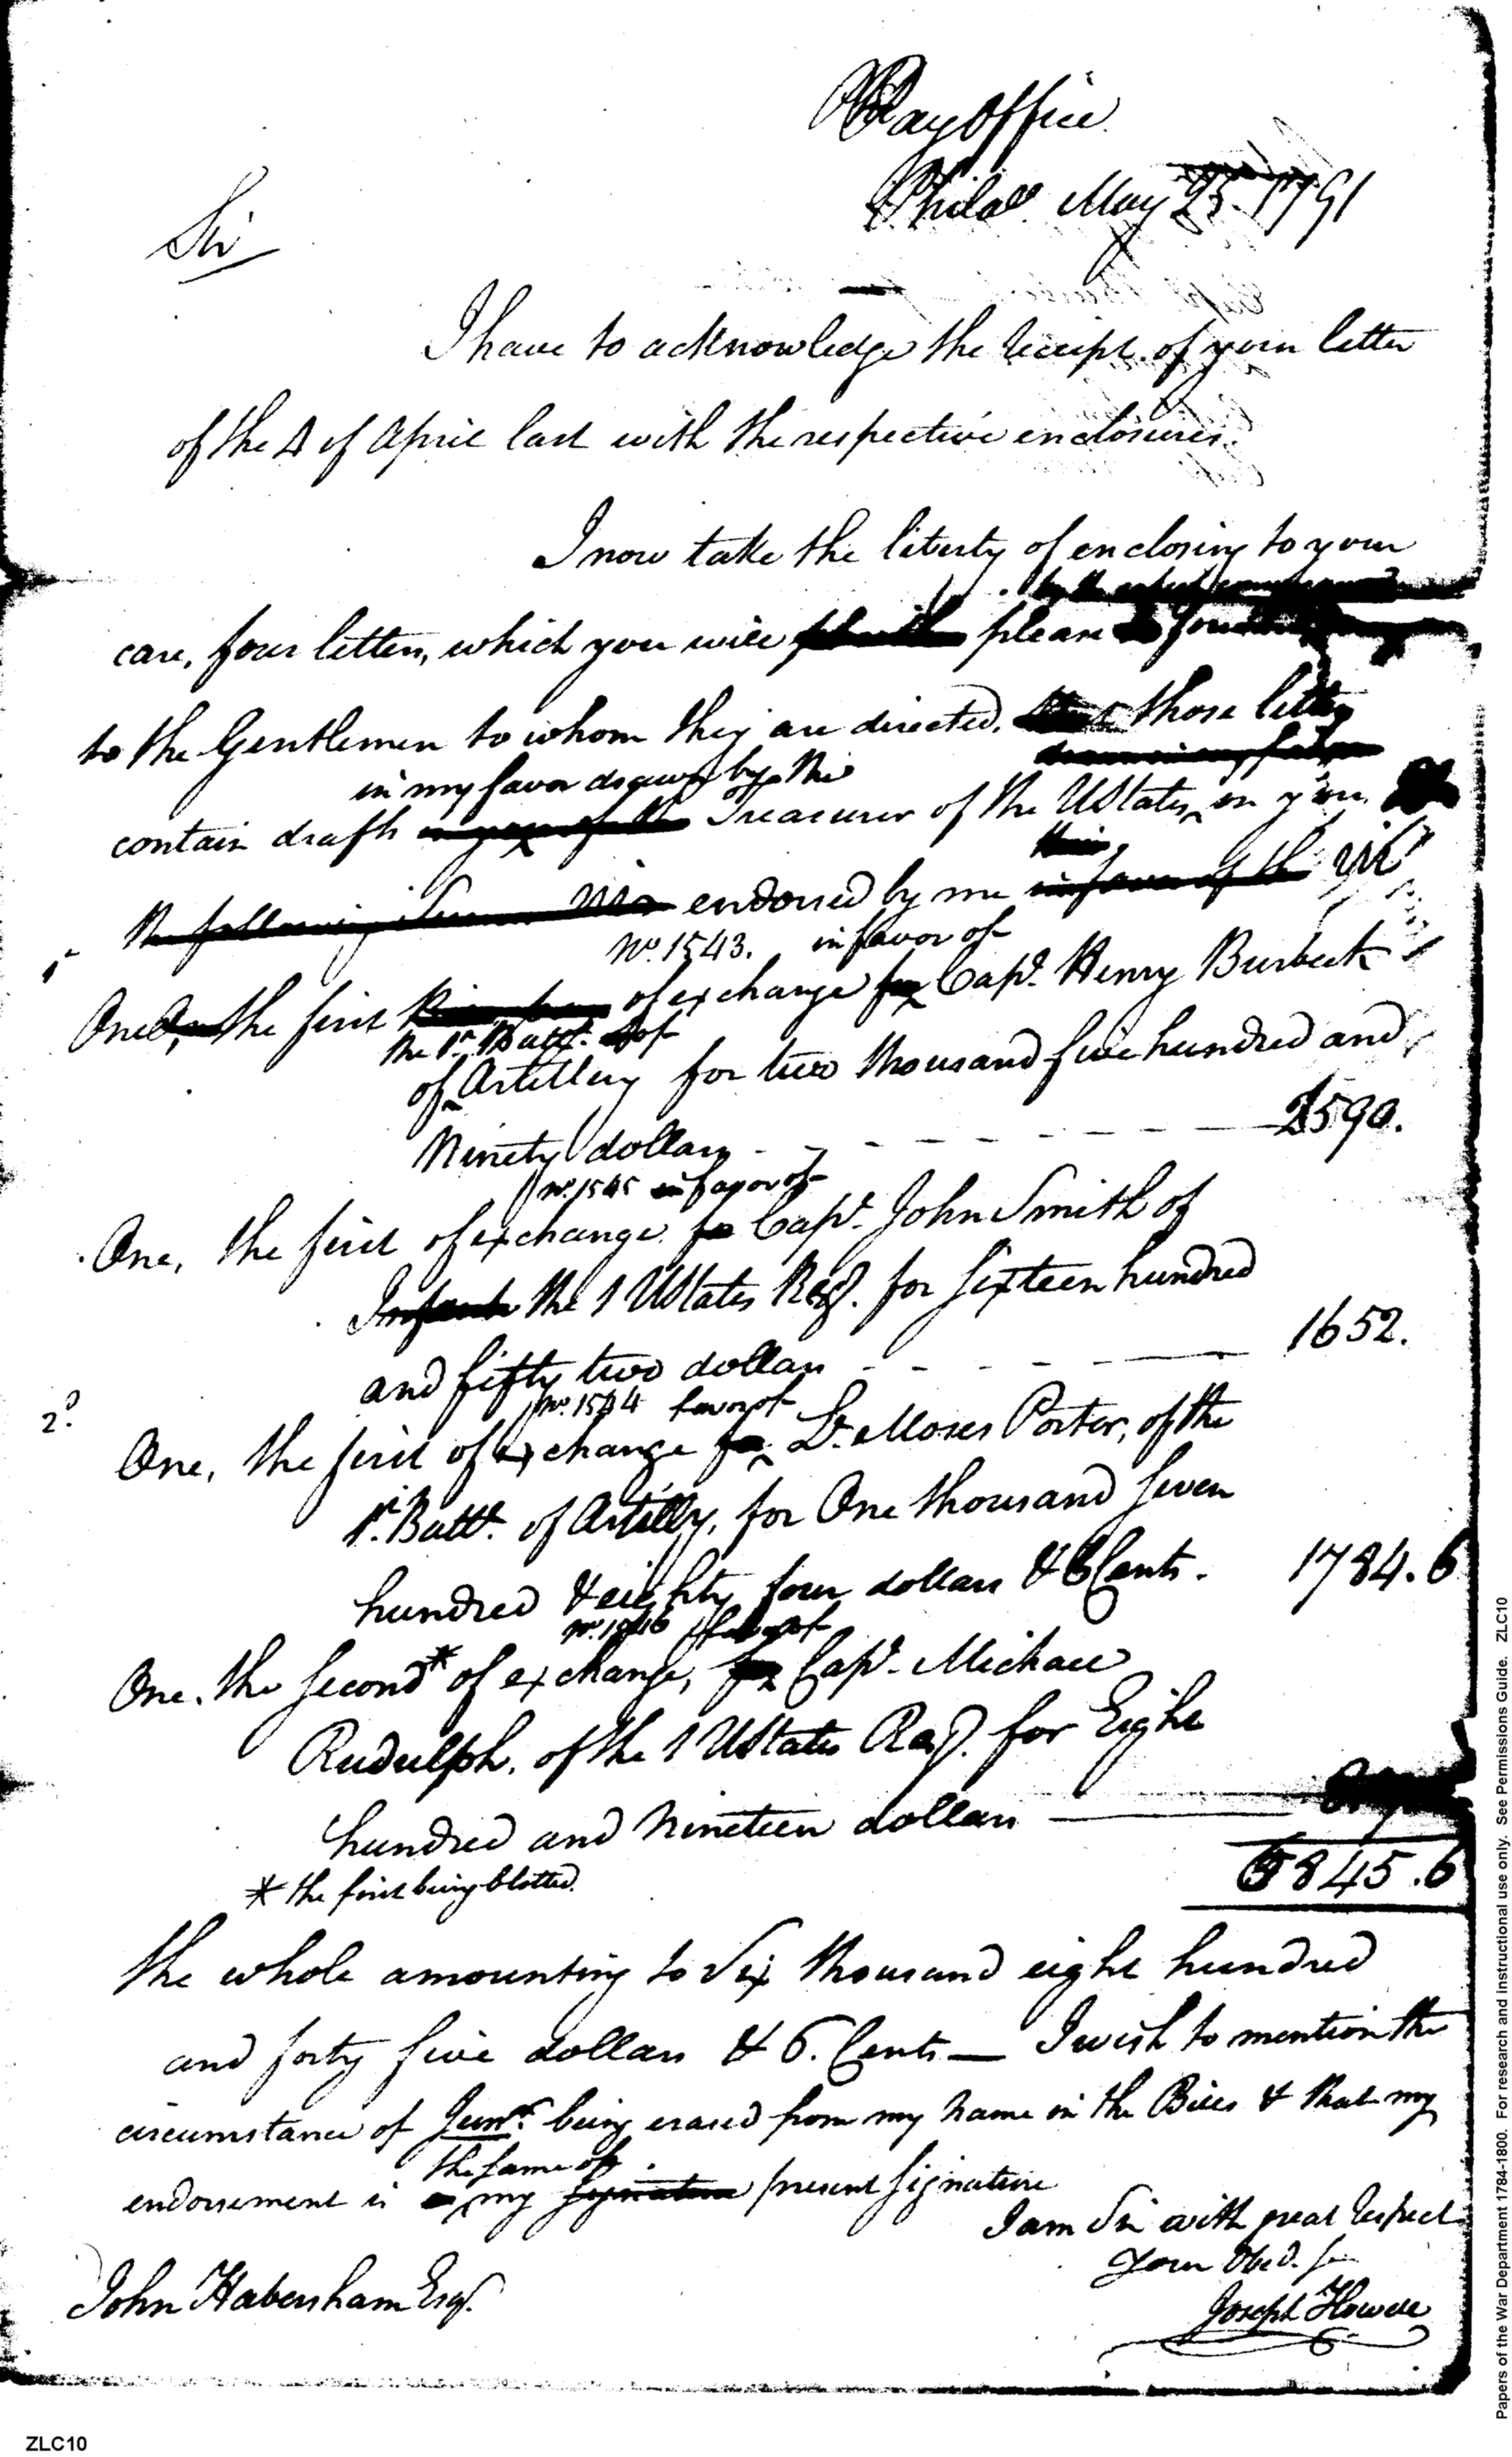 Pay Office
Philad. May 25. 1791
Sir
I have to acknowledge the receipt of your letter
of the 4 of April last with the respective enclosures.
I now take the liberty of enclosing to your
care, four letters, which you will please
to the Gentlemen to whom they are directed. those letters
in my favor drawn by the
contain drafts Treasurer of the UStates, on you,
endorsed by me viz
No. 1543. in favor of
One, the first of exchange Capt. Henry Burbeck
the 1st Batt. of
of Artillery for two thousand five hundred and
Ninety dollars 2590.
No. 1545 in favor of
One, the first of exchange Capt. John Smith of
the 1 UStates Regt. for sixteen hundred
and fifty two dollars 1652.
No. 1544 favor of
2d
One, the first of exchange Lt. Moses Porter, of the
1st. Batt. of Artilly, for One thousand seven
hundred & eighty four dollars & 6 Cents. 1784.6
No. 1546 favor of
One, the second* of exchange, Capt. Michael
Rudulph, of the 1 UStates Regt. for Eight
hundred and nineteen dollars
* the first being blotted.
6845.6
the whole amounting to Six thousand eight hundred
and forty five dollars & 6. Cents — I wish to mention the
circumstance of Junr. being erased from my name in the Bills & that my
the same of
endorsement is my present signature
I am Sir with great respect
Your Obed. Se
Joseph Howell
John Habersham Esqr.
Papers of the War Department 1784-1800. For research and instructional use only. See Permissions Guide. ZLC10
ZLC10